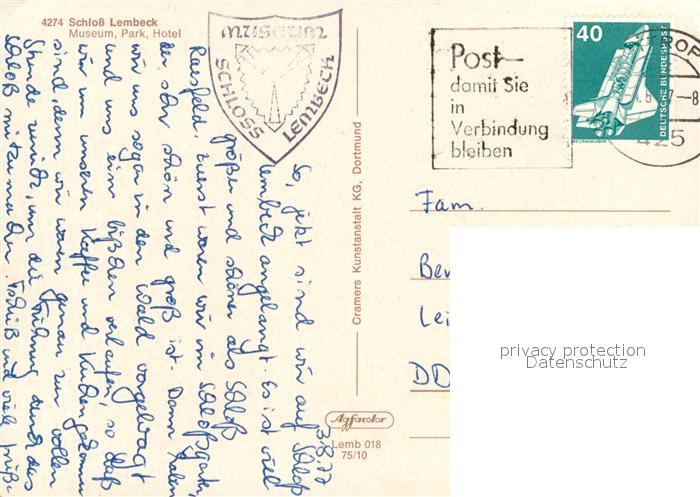 4274 Schloß Lembeck
Museum, Park, Hotel
MUSEUM
SCHLOSS
LEMBECK
Post—
damit Sie
in
Verbindung
bleiben
40
DEUTSCHE BUNDESPOST
WELTRAUMLABOR
7-8
425
Cramers Kunstanstalt KG, Dortmund
Agfacolor
Lemb 018
75/10
3.8.77
So, jetzt sind wir auf Schloß
Lembeck angelangt. Es ist viel
größer und schöner als Schloß
Raesfeld. Zuerst waren wir im Schloßgarten,
der sehr schön und groß ist. Dann haben
wir uns sogar in den Wald vorgewagt
und uns ein bißchen verlaufen, so daß
wir um unseren Kaffee und Kuchen gekommen
sind, denn wir waren genau zur vollen
Stunde zurück, um die Führung durch das
Schloß mitzumachen. Tschüß und viele Grüße
Fam.
Be
Lei
DD
privacy protection
Datenschutz